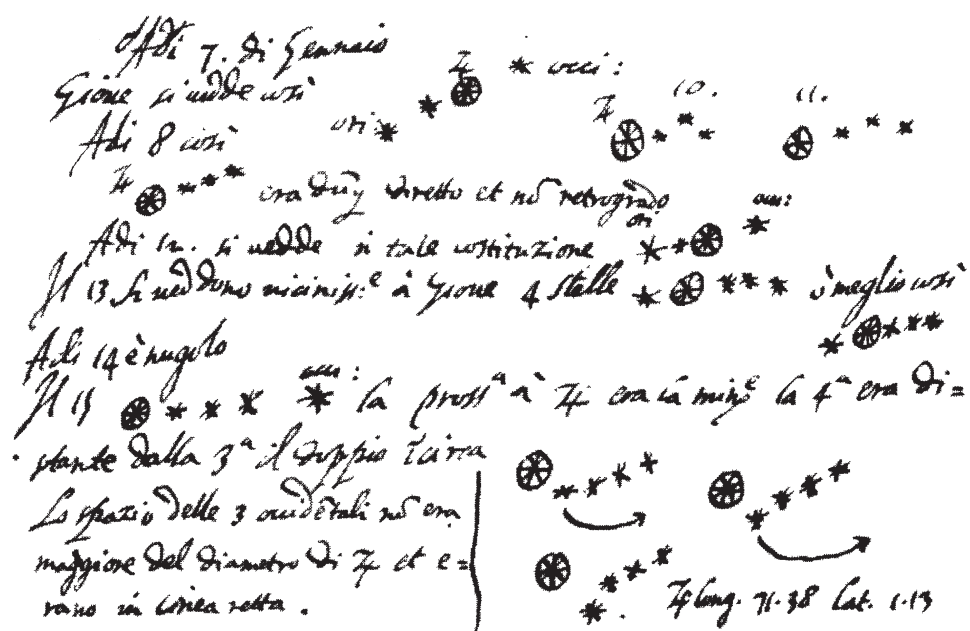 Adi 7. di Gennaio
Gioue si uedde così ♃ occi:
Adi 8 così ori: ♃ 10. 11.
♃ era dūq diretto et nō retrogrado
Adi 12. si uedde i tale costituzione ori: occ:
Il 13 si ueddono vicinissᵉ à Gioue 4 stelle ò meglio così
Adi 14 è nugolo
Il 15 occ: la prossᵃ à ♃ era la minᵉ la 4ᵃ era di=
stante dalla 3ᵃ il doppio ī circa
Lo spazio delle 3 occidētali nō era
maggiore del diametro di ♃ et e=
rano in linea retta.
♃ long. 71.38 lat. 1.13